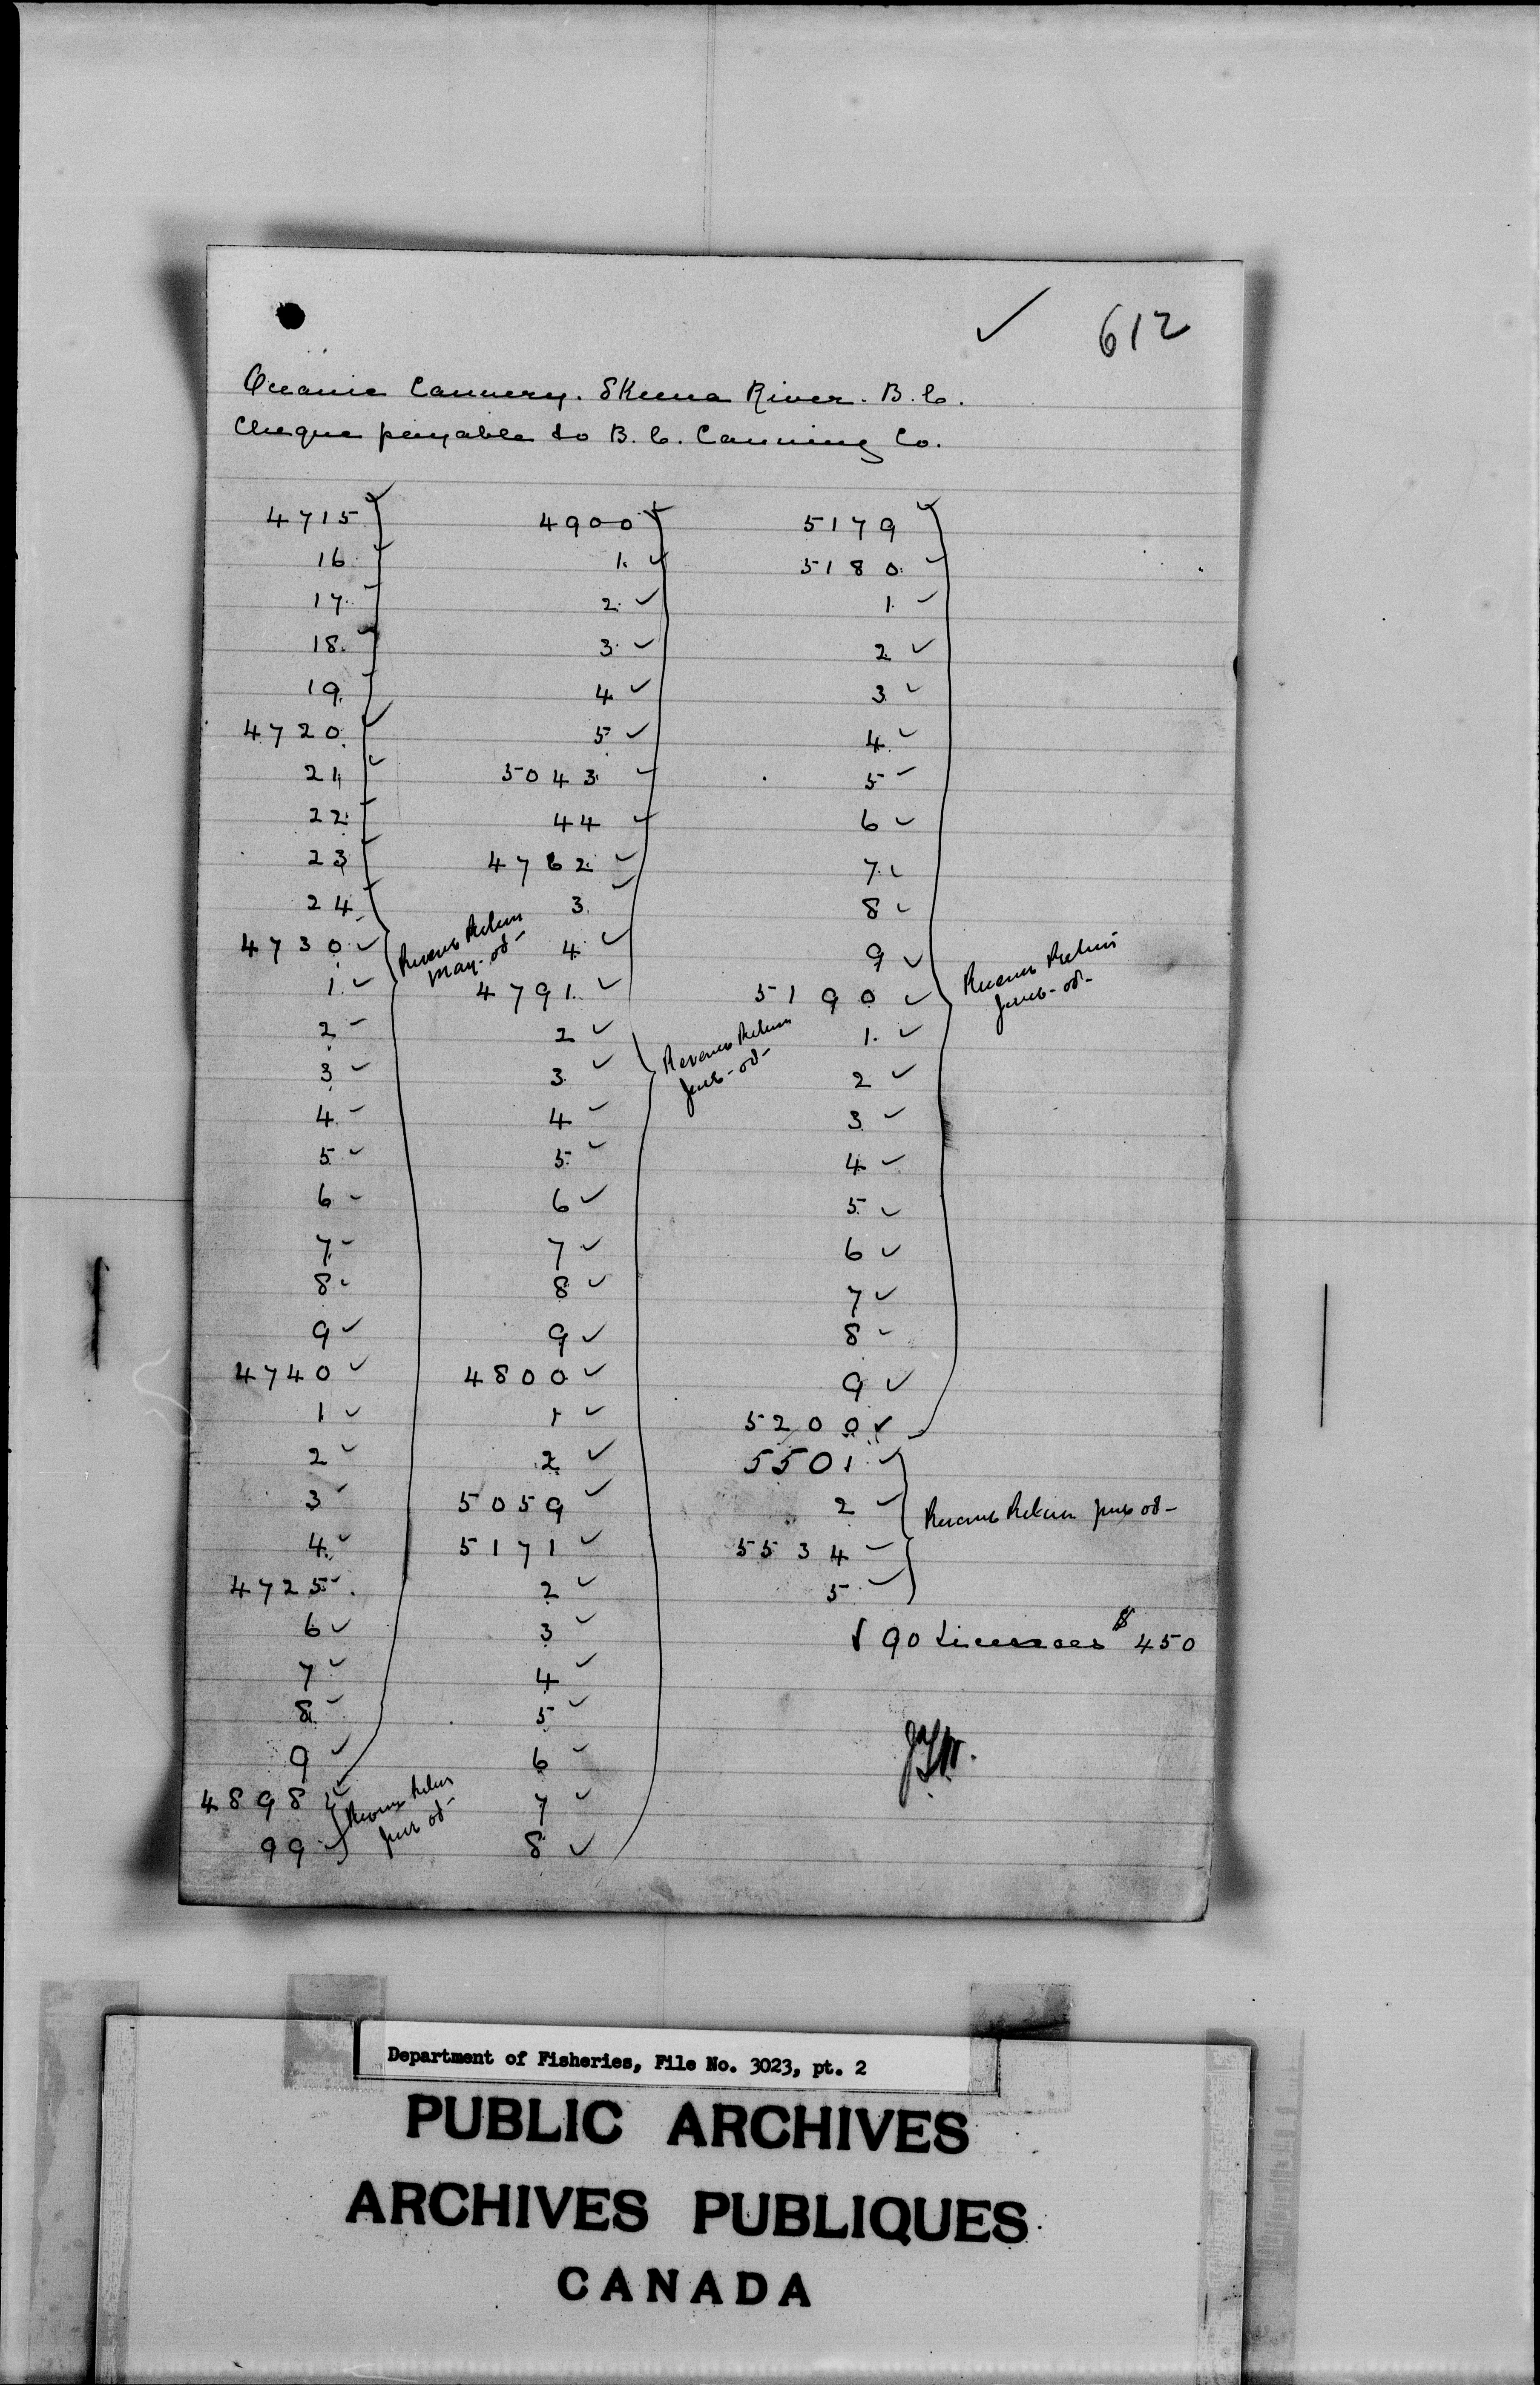 612
Oceanic Cannery. Skeena River. B.C.
Cheque payable to B.C. Canning Co.
4715
16
17
18
19
4720
21
22
23
24
4730
1
2
3
4
5
6
7
8
9
4740
1
2
3
4
4725
6
7
8
9
4898
99
Revenue Return
May-08-
Revenue Return
June 08-
4900
1
2
3
4
5
5043
44
4762
3
4
4791
2
3
4
5
6
7
8
9
4800
1
2
5059
5171
2
3
4
5
6
7
8
Revenue Return
June-08-
5179
5180
1
2
3
4
5
6
7
8
9
5190
1
2
3
4
5
6
7
8
9
5200
5501
2
5534
5
Revenue Return
June-08-
Revenue Return June 08-
90 Licenses $450
Department of Fisheries, File No. 3023, pt. 2
PUBLIC ARCHIVES
ARCHIVES PUBLIQUES
CANADA